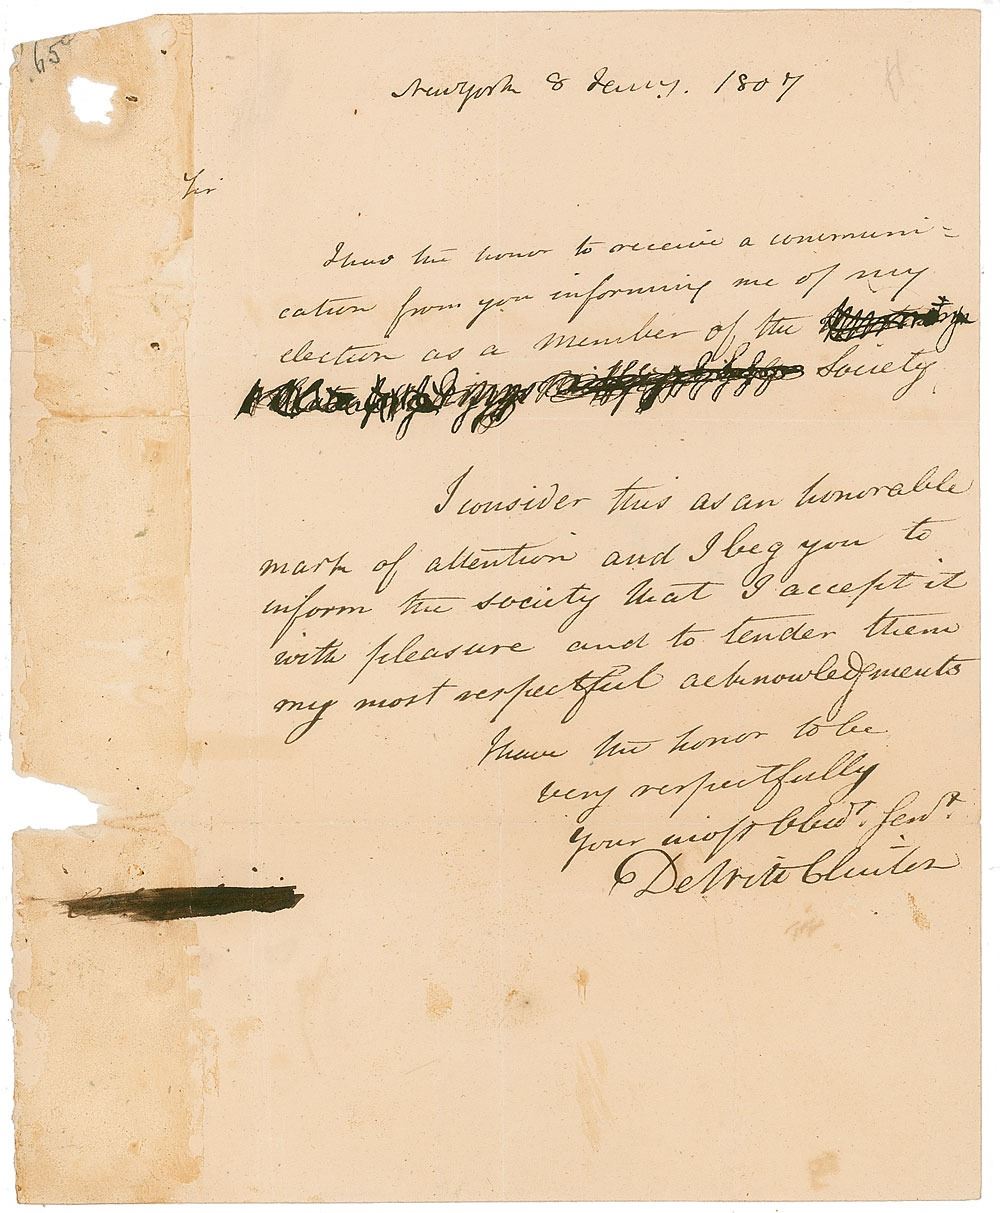 650
New York 8 Jany. 1807
Sir
I had the honor to receive a communi=
cation from you informing me of my
election as a member of the
Society
I consider this as an honorable
mark of attention and I beg you to
inform the society that I accept it
with pleasure and to tender them
my most respectful acknowledgments
I have the honor to be
very respectfully
your most Obedt. Servt.
DeWitt Clinton